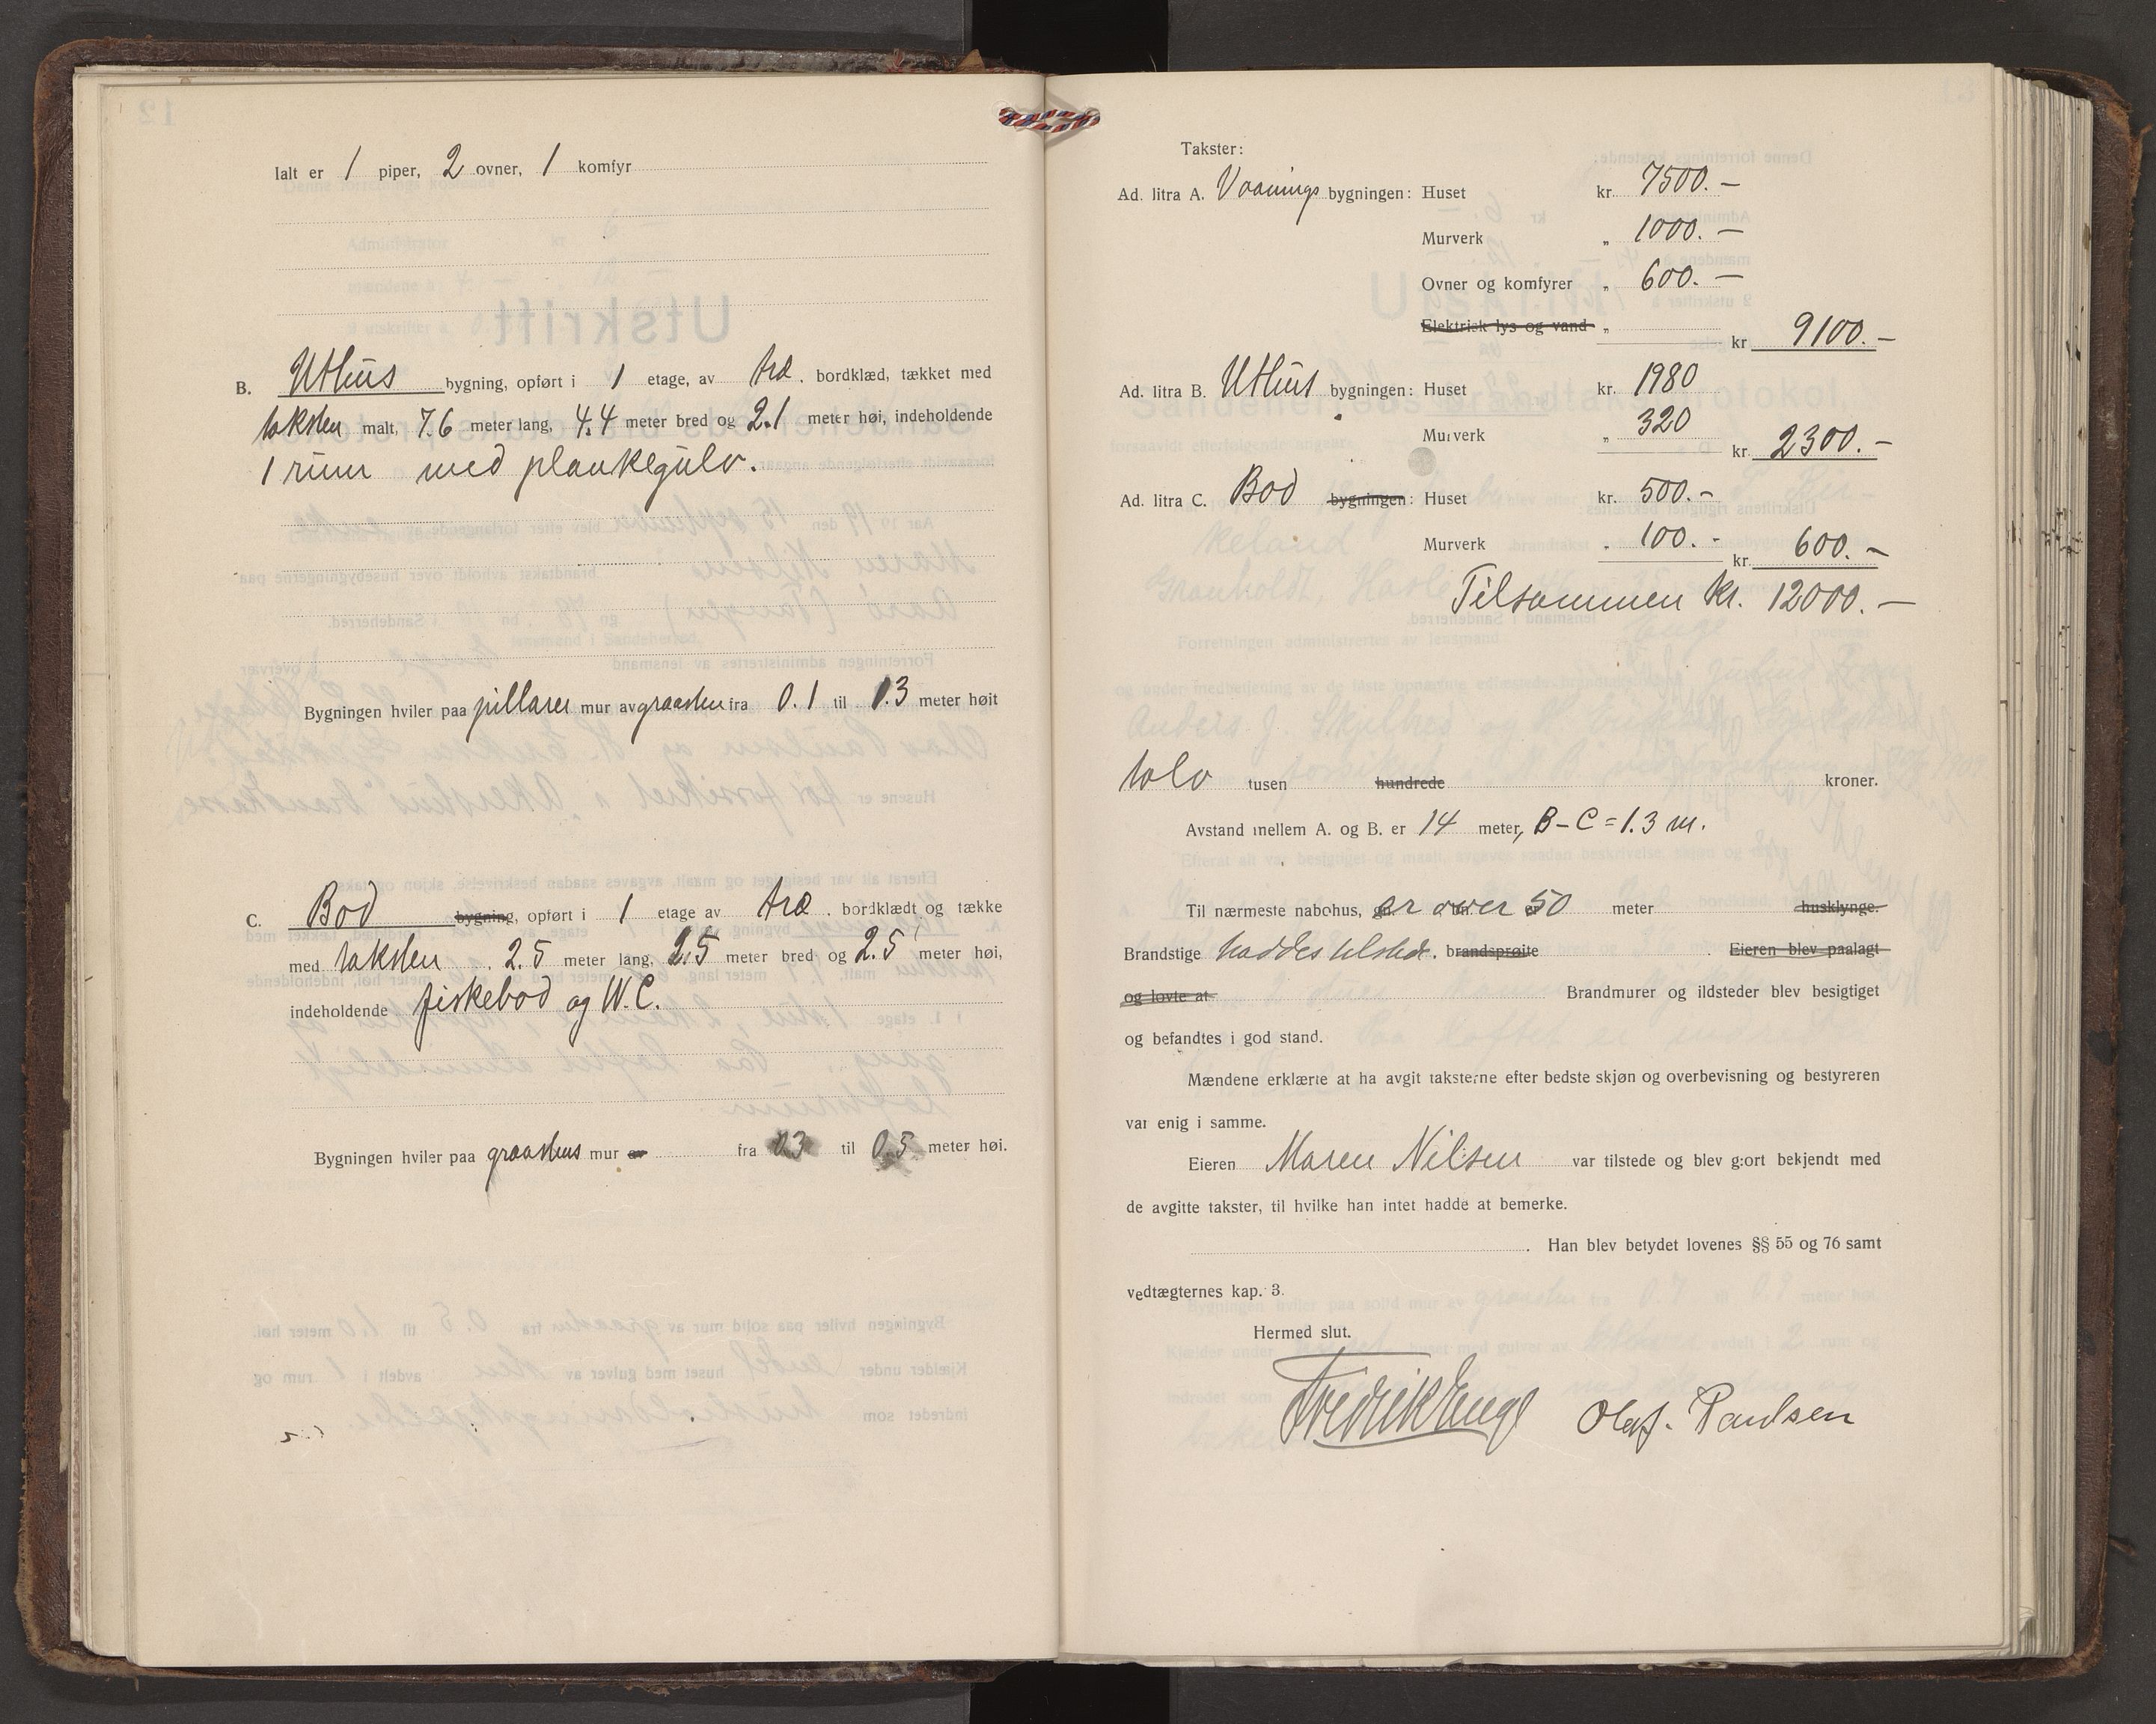 Ialt er 1 piper, 2 ovner, 1 komfyr
B. Uthus bygning, opført i 1 etage, av træ. bordklæd, tækket med
taksten malt, 7.6 meter lang, 4.4 meter bred og 2.1 meter høi, indeholdende
1 rum med plankegulv.
Bygningen hviler paa pillarer mur av graasten fra 0.1 til 0.3 meter høit
C. Bod bygning, opført i 1 etage av træ. bordklædt og tække
med taksten 2.5 meter lang, 2.5 meter bred og 2.5 meter høi,
indeholdende fiskebod og W.C.
Bygningen hviler paa graastens mur av fra 0.3 til 0.5 meter høi.
Takster:
Ad. litra A. Vaanings bygningen: Huset kr. 7500.-
Murverk „ 1000.-
Ovner og komfyrer „ 600.-
Elektrisk lys og vand „
kr 9100.-
Ad. litra B. Uthus bygningen: Huset kr. 1980
Murverk „ 320
kr. 2300.-
Ad. litra C. Bod bygningen: Huset kr. 500.-
Murverk „ 100.-
kr. 600.-
Tilsammen kr. 12000.-
tolv tusen hundrede kroner.
Avstand mellem A. og B. er 14 meter, B-C=1.3 m.
Til nærmeste nabohus, er over 50 meter husklynge.
Brandstige haddes tilsted. brandsprøite . Eieren blev paalagt
og lovte at Brandmurer og ildsteder blev besigtiget
og befandtes i god stand.
Mændene erklærte at ha avgit taksterne efter bedste skjøn og overbevisning og bestyreren
var enig i samme.
Eieren Maren Nilsen var tilstede og blev gjort bekjendt med
de avgitte takster, til hvilke han intet hadde at bemerke.
. Han blev betydet lovenes §§ 55 og 76 samt
vedtægternes kap. 3.
Hermed slut.
Fredrik Enge Olaf. Paulsen